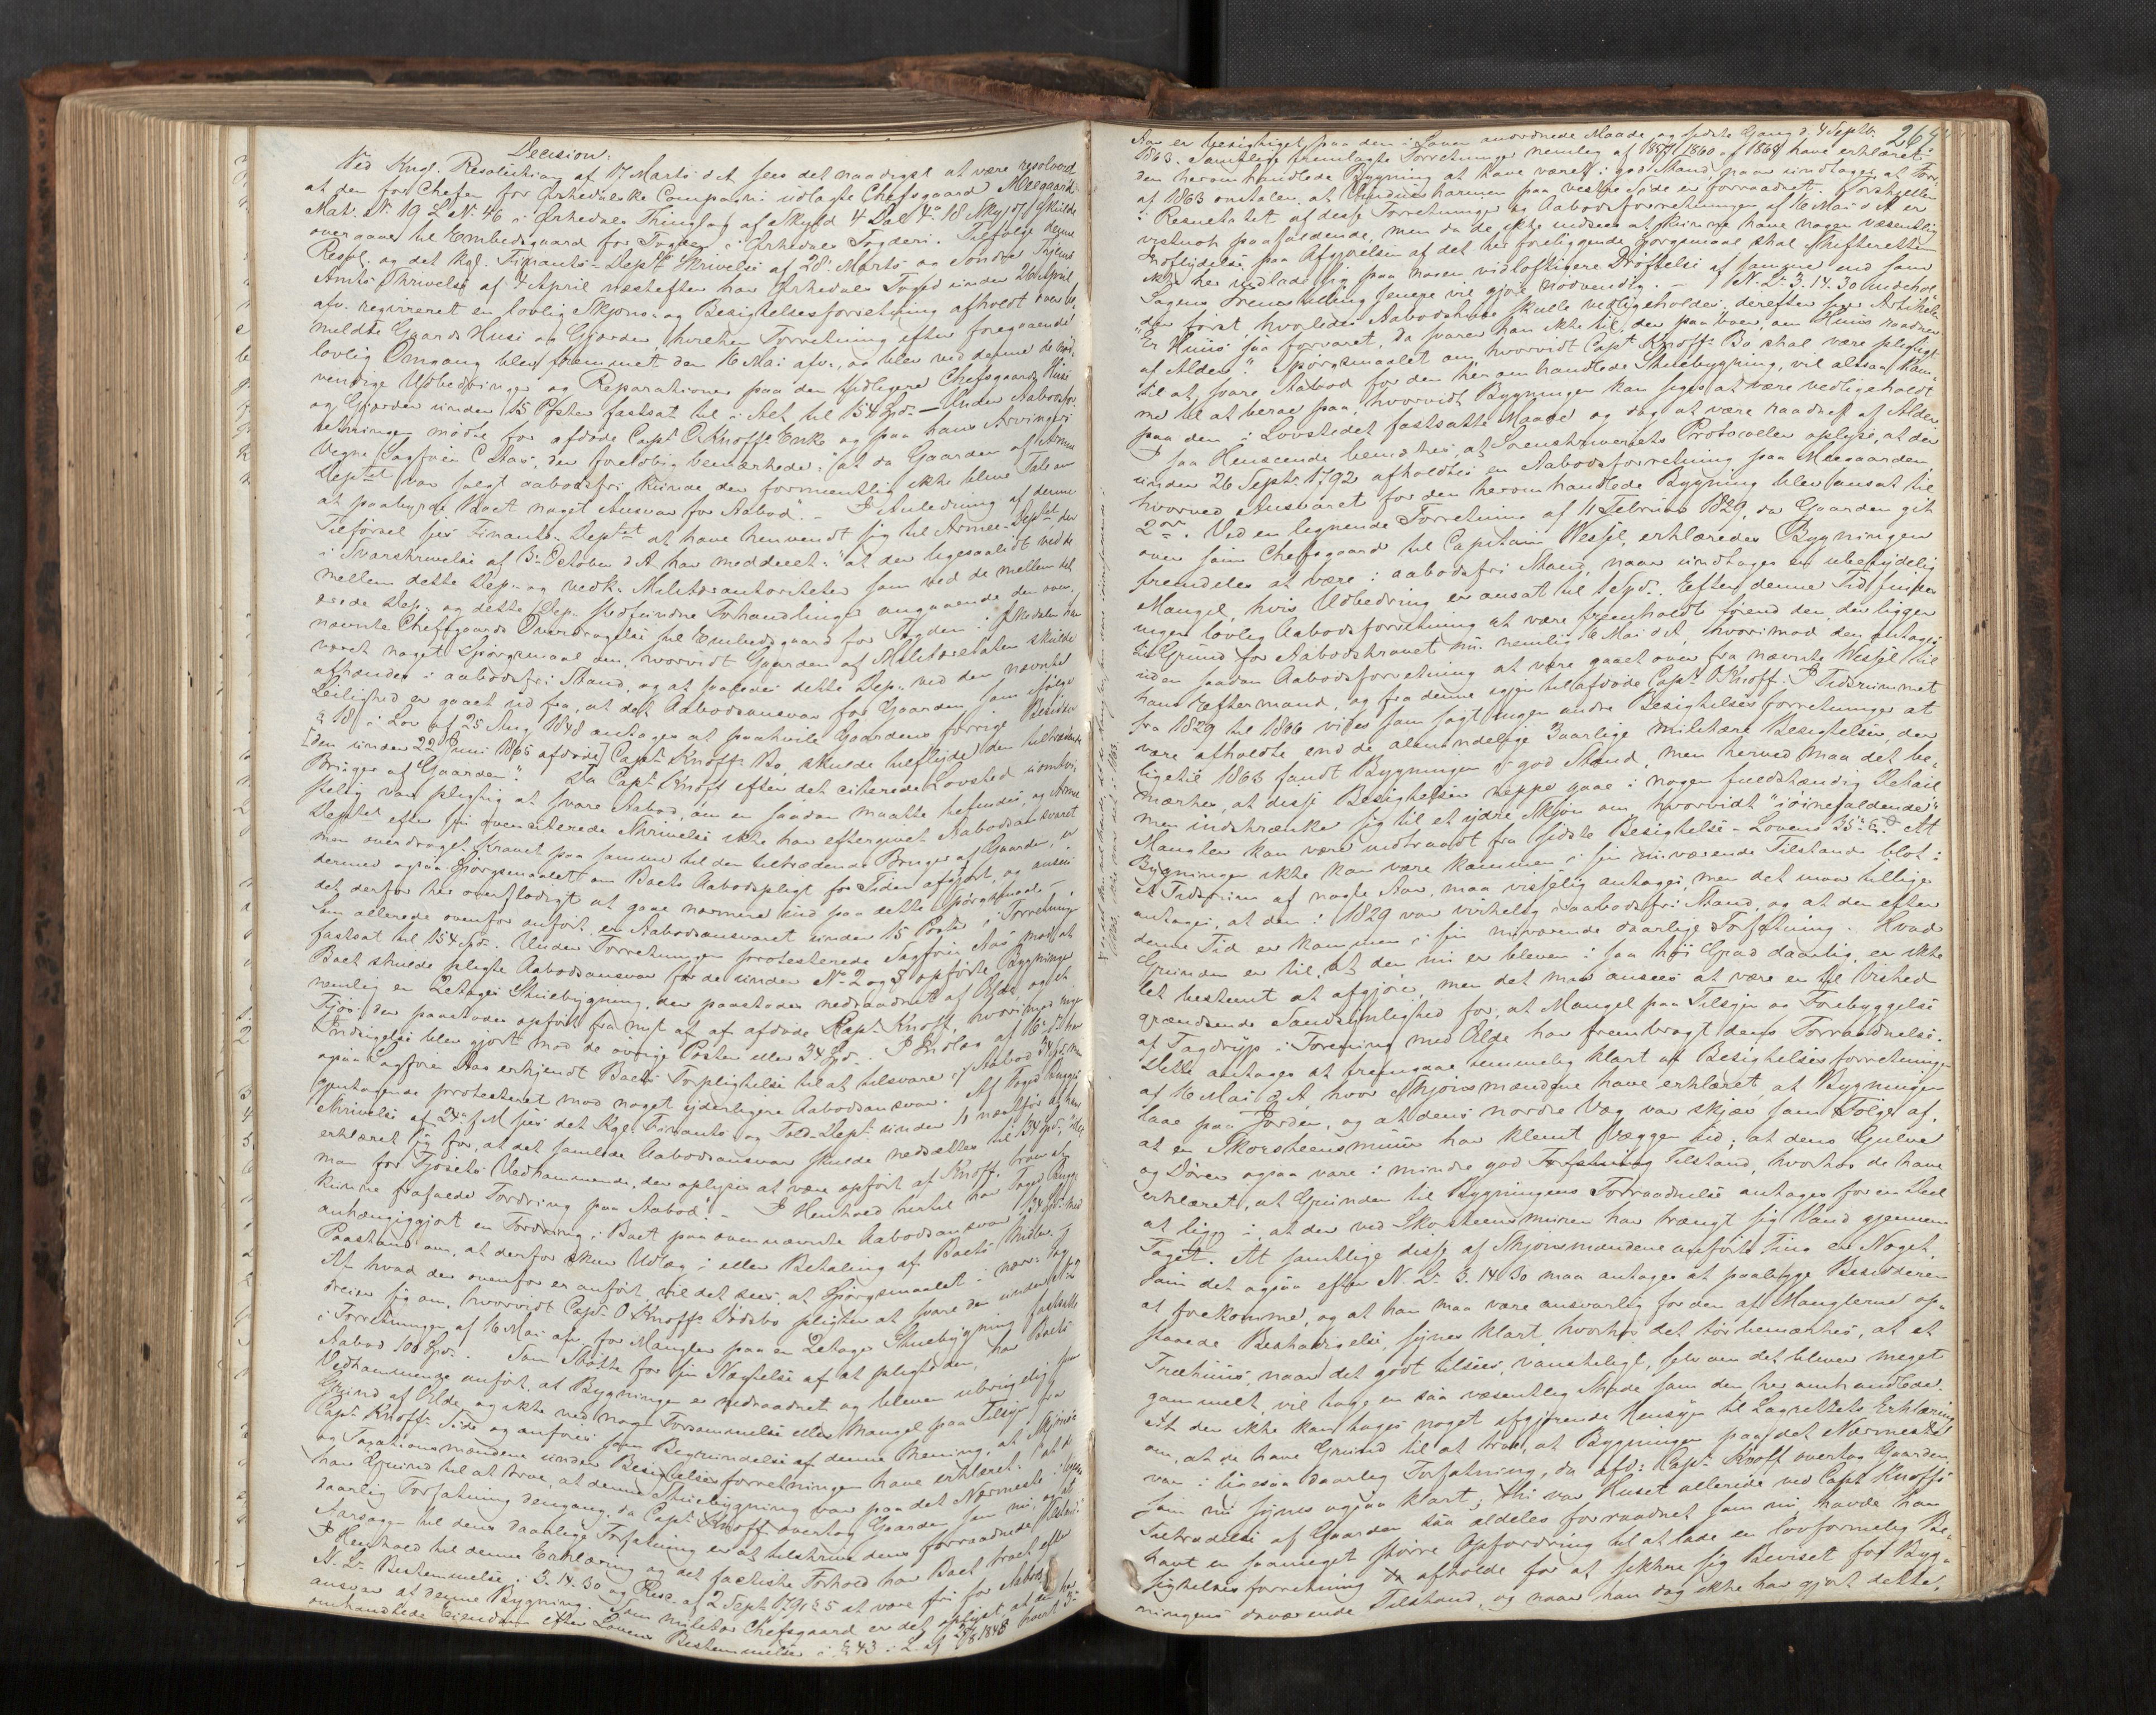 Decision:
Ved Kngl. Resolution af 17 Marts d A sees det naadigst at være resolveret
at den for Chefen for Ørkedalske Compagni udlagte Chefsgaard Megaard
Mat. N. 19 L N. 46 i Ørkedals Thinglag af Skyld 4 Dal. 4 18 skulde
overgaae til Embedsgaard for Fogden i Ørkedals Fogderi. Tilfølge denne
Resol. og det Kgl. Finants-Depts Skrivelse af 28 Marts og Søndre Thjems
Amts Skrivelse af 7 April næstefter har Ørkedals Foged under 26 April
afv. reqvireret en lovlig Skjøns- og Besigtelsesforretning afholdt over be-
meldte Gaards Huse og Gjerder, hvilken Forretning efter foregaaende
lovlig Omgang blev fremmet den 16 Mai afv., og blev ved denne de nød-
vendige Udbedringer og Reparationer paa den tidligere Chefsgaards Huse
og Gjerder under 15 Poster fastsat til i Alt til 154 Spd. — Under Aabodsfor-
retningen mødte for afdøde Capt. O Knoffs Enke og paa hans Arvingers
Vegne Sagfører C Aas, der foreløbig bemærkede: "at da Gaarden af Armee
Deptet var solgt aabodsfri, kunde der formentlig ikke blive Tale om
at paabyrde Boet noget Ansvar for Aabod". — I Anledning af denne
Tilførsel sees Finants-Deptet at have henvendt sig til Armee-Deptet, der
i Svarskrivelse af 3 October d A har meddeelt: "at der ligesaalidt ved de
mellem dette Dep. og vedk. Militærautoriteter som ved de mellem det
ærede Dep. og dette Dep. stedfundne Forhandlinger angaaende den oven-
nævnte Chefsgaards Overdragelse til Embedsgaard for Fogden i Ørkedalen har
været noget Spørgsmaal om, hvorvidt Gaarden af Militæretaten skulde
afhændes i aabodsfri Stand, og at saaledes dette Dep. ved den nævnte
Leilighed er gaaet ud fra, at det Aabodsansvar for Gaarden, som ifølge
§ 18 i Lov af 25 Aug 1848 antages at paahvile Gaardens forrige Besidder
[den under 22 Juni 1865 afdøde] Capt. Knoffs Bo, skulde tilflyde den tiltrædende
Bruger af Gaarden". Da Capt. Knoff efter det citerede Lovsted uomtvi-
stelig var pligtig at svare Aabod, om en saadan maatte befindes, og Armee
Deptet efter sin ovenciterede Skrivelse ikke har eftergivet Aabodsansvaret
men overdraget Kravet paa samme til den tiltrædende Bruger af Gaarden, er
dermed ogsaa Spørgsmaalet om Boets Aabodspligt for Tiden afgjort, og ansees
det derfor her overflødigt at gaae nærmere ind paa dette Spørgsmaal. —
Som allerede ovenfor anført, er Aabodsansvaret under 15 Poster i Forretningen
fastsat til 154 Spd. Under Forretningen protesterede Sagfører Aas mod, at
Boet skulde pligte Aabodsansvar for de under No 2 og 5 opførte Bygninger
nemlig en 2etages Stuebygning, der paastodes nedraadnet af Ælde, og et
Fjøs, der paastodes opført fra nyt af af afdøde Capt. Knoff, hvorimod ingen
Indsigelse blev gjort mod de øvrige Poster eller 34 Spd. I Indlæg af 16 har
ogsaa Sagfører Aas erkjendt Boets Forpligtelse til at tilsvare i Aabod 34 Spd. men
gjentagende protesteret mod noget yderligere Aabodsansvar. Af Foged Bugges
Skrivelse af 24 f M sees det Kgl. Finants og Told-Dept. under 11 næstfør at have
erklæret sig for, at det samlede Aabodsansvar skulde nedsættes til 134 Spd., "idet
man for Fjøsets Vedkommende, der oplyses at være opført af Knoff, troer at
kunne frafalde Fordring paa Aabod". — I Henhold hertil har Foged Bugge
anhængiggjort en Fordring i Boet paa ovennævnte Aabodsansvar 134 Spd. med
Paastand om, at derfor skeer Udlæg i eller Betaling af Boets Midler. —
Af hvad der ovenfor er anført, vil det sees, at Spørgsmaalet i nærv. Sag
dreier sig om, hvorvidt Capt. O Knoffs Dødsbo pligter at svare den under No 2
i Forretningen af 16 Mai afv. for Mangler paa en 2etages Stuebygning fastsatte
Aabod 100 Spd. — Som Støtte for sin Nægtelse af at pligte den, har Boets
Vedkommende anført, at Bygningen er nedraadnet og bleven ubrugelig paa
Grund af Ælde, og ikke ved nogen Forsømmelse eller Mangel paa Tilsyn fra
Capt. Knoffs Side og anføres som Begrundelse af denne Mening, at Skjøns
og Taxationsmændene under Besigtelsesforretningen have erklæret "at de
har Grund til at troe, at denne Stuebygning var paa det Nærmeste i ligesaa
daarlig Forfatning dengang, da Capt. Knoff overtog Gaarden som nu, og at
Aarsagen til dens daarlige Forfatning er at tilskrive dens forraadnede Ælde".
I Henhold til denne Erklæring og det factiske Forhold har Boet troet efter
N. L's Bestemmelse i 3-14-30 og Resc. af 2 Sept. 1791 § 5 at være fri for Aabods-
ansvar at denne Bygning. Som militær Chefsgaard er det oplyst, at den her
omhandlede Eiendom efter Lovens Bestemmelse i § 43 i L. af 25/8 1848 hvert 3
264
Aar er besigtiget paa den i Loven anordnede Maade og sidste Gang d. 4 Septbr.
1863. Samtlige fremlagte Forretninger nemlig af 1857, 1860 og 1863 have erklæret
den heromhandlede Bygning at have været i god Stand, naar undtages, at Forr.
af 1863 omtaler, at Vindueskarmen paa vestre Side er forraadnet. Forskjellen
i Resultatet af disse Forretninger og Aabodsforretningen af 16 Mai d A er
vistnok paafaldende, men da de ikke indsees at kunne have nogen væsentlig
Indflydelse paa Afgjørelsen af det her foreliggende Spørgsmaal skal Skifteretten
ikke her indlade sig paa nogen vidløftigere Drøftelse af samme end som
Sagens Fremstilling senere vil gjøre nødvendig. — I N. L. 3-14-30 indehol-
des først, hvorledes Aabodshuse skulle vedligeholdes, derefter siger Artikelen
"Er Huus saa forvaret, da svarer han ikke til, der paa boer, om Huus raadner
af Alder". Spørgsmaalet om, hvorvidt Capt. Knoffs Bo skal være pligtigt
til at svare Aabod for den her omhandlede Stuebygning, vil altsaa kom-
me til at beroe paa, hvorvidt Bygningen kan siges at være vedligeholdt
paa den i Lovstedet fastsatte Maade og dog at være raadnet af Alder.
I saa Henseende bemærkes, at Sorenskriveriets Protocoller oplyse, at der
under 26 Septr. 1792 afholdtes en Aabodsforretning paa Meegaarden
hvorved Ansvaret for den heromhandlede Bygning blev ansat til
2 Ort. Ved en lignende Forretning af 11 Februar 1829, da Gaarden gik
over som Chefsgaard til Capitain Wessel, erklæredes Bygningen
fremdeles at være i aabodsfri Stand, naar undtages en ubetydelig
Mangel, hvis Udbedring er ansat til 1 Spd. Efter denne Tid findes
ingen lovlig Aabodsforretning at være fremholdt førend den, der ligger
til Grund for Aabodskravet nu, nemlig 16 Mai d A, hvorimod den antages
uden saadan Aabodsforretning at være gaaet over fra nævnte Wessel til
hans Eftermand, og fra denne igjen til afdøde Capt. O Knoff. I Tidsrummet
fra 1829 til 1866 vides som sagt ingen andre Besigtelsesforretninger at
være afholdte end de almindelige 3aarlige militære Besigtelser, der
ligetil 1863 fandt Bygningen i god Stand, men herved maa det be-
mærkes, at disse Besigtelser neppe gaae i nogen fuldstændig Detail
men indskrænke sig til et ydre Skjøn om, hvorvidt "iøinefaldende"
Mangler kan være indtraadt fra sidste Besigtelse - Lovens 35 §. At
Bygningen ikke kan være kommen i sin nuværende Tilstand blot i
et Tidsrum af nogle Aar, maa visselig antages, men det maa tillige
antages, at den i 1829 var virkelig i aabodsfri Stand, og at den efter
denne Tid er kommen i sin nuværende daarlige Forfatning. Hvad
Grunden er til, at den nu er bleven i saa høi Grad daarlig, er ikke
let bestemt at afgjøre, men det maa ansees at være en til Vished
grændsende Sandsynlighed for, at Mangel paa Tilsyn og Forebyggelse
af Tagdryp i Forening med Ælde har frembragt dens Forraadnelse.
Dette antages at fremgaae temmelig klart af Besigtelsesforretningen
af 16 Mai d A, hvor Skjønsmændene have erklæret, at Bygningen
laae paa Jorden, og at dens nordre Væg var skjæv som Følge af,
at en Skorsteensmuur har klemt Væggen ud, at dens Gulve
og Døren ogsaa vare i mindre god Tilstand, hvorhos de have
erklæret, at Grunden til Bygningens Forraadnelse antages for en Deel
at ligge i, at der ved Skorsteensmuren har trængt sig Vand gjennem
Taget. At samtlige disse af Skjønsmændene anførte Ting er Noget,
som det ogsaa efter N. L. 3-14-30 maa antages at paaligge Besidderen
at forekomme, og at han maa være ansvarlig for den af Manglerne op-
staaede Beskadigelse, synes klart, hvorhos det bør bemærkes, at et
Træhuus, naar det godt tilsees, vanskeligt, selv om det bliver meget
gammelt, vil tage en saa væsentlig Skade som den her omhandlede.
At der ikke kan tages noget afgjørende Hensyn til Lagrettets Erklæring
om, at de have Grund til at troe, at Bygningen paa det Nærmeste
var i ligesaa daarlig Forfatning, da afd: Capt. Knoff overtog Gaarden,
som nu synes ogsaa klart; thi var Huset allerede ved Capt. Knoffs
Tiltrædelse af Gaarden saa aldeles forraadnet som nu, havde han
havt en saameget større Opfordring til at lade en lovformelig Be-
sigtelsesforretning afholde for at sikkre sig Beviset for Byg-
ningens daværende Tilstand, og naar han dog ikke har gjort dette,